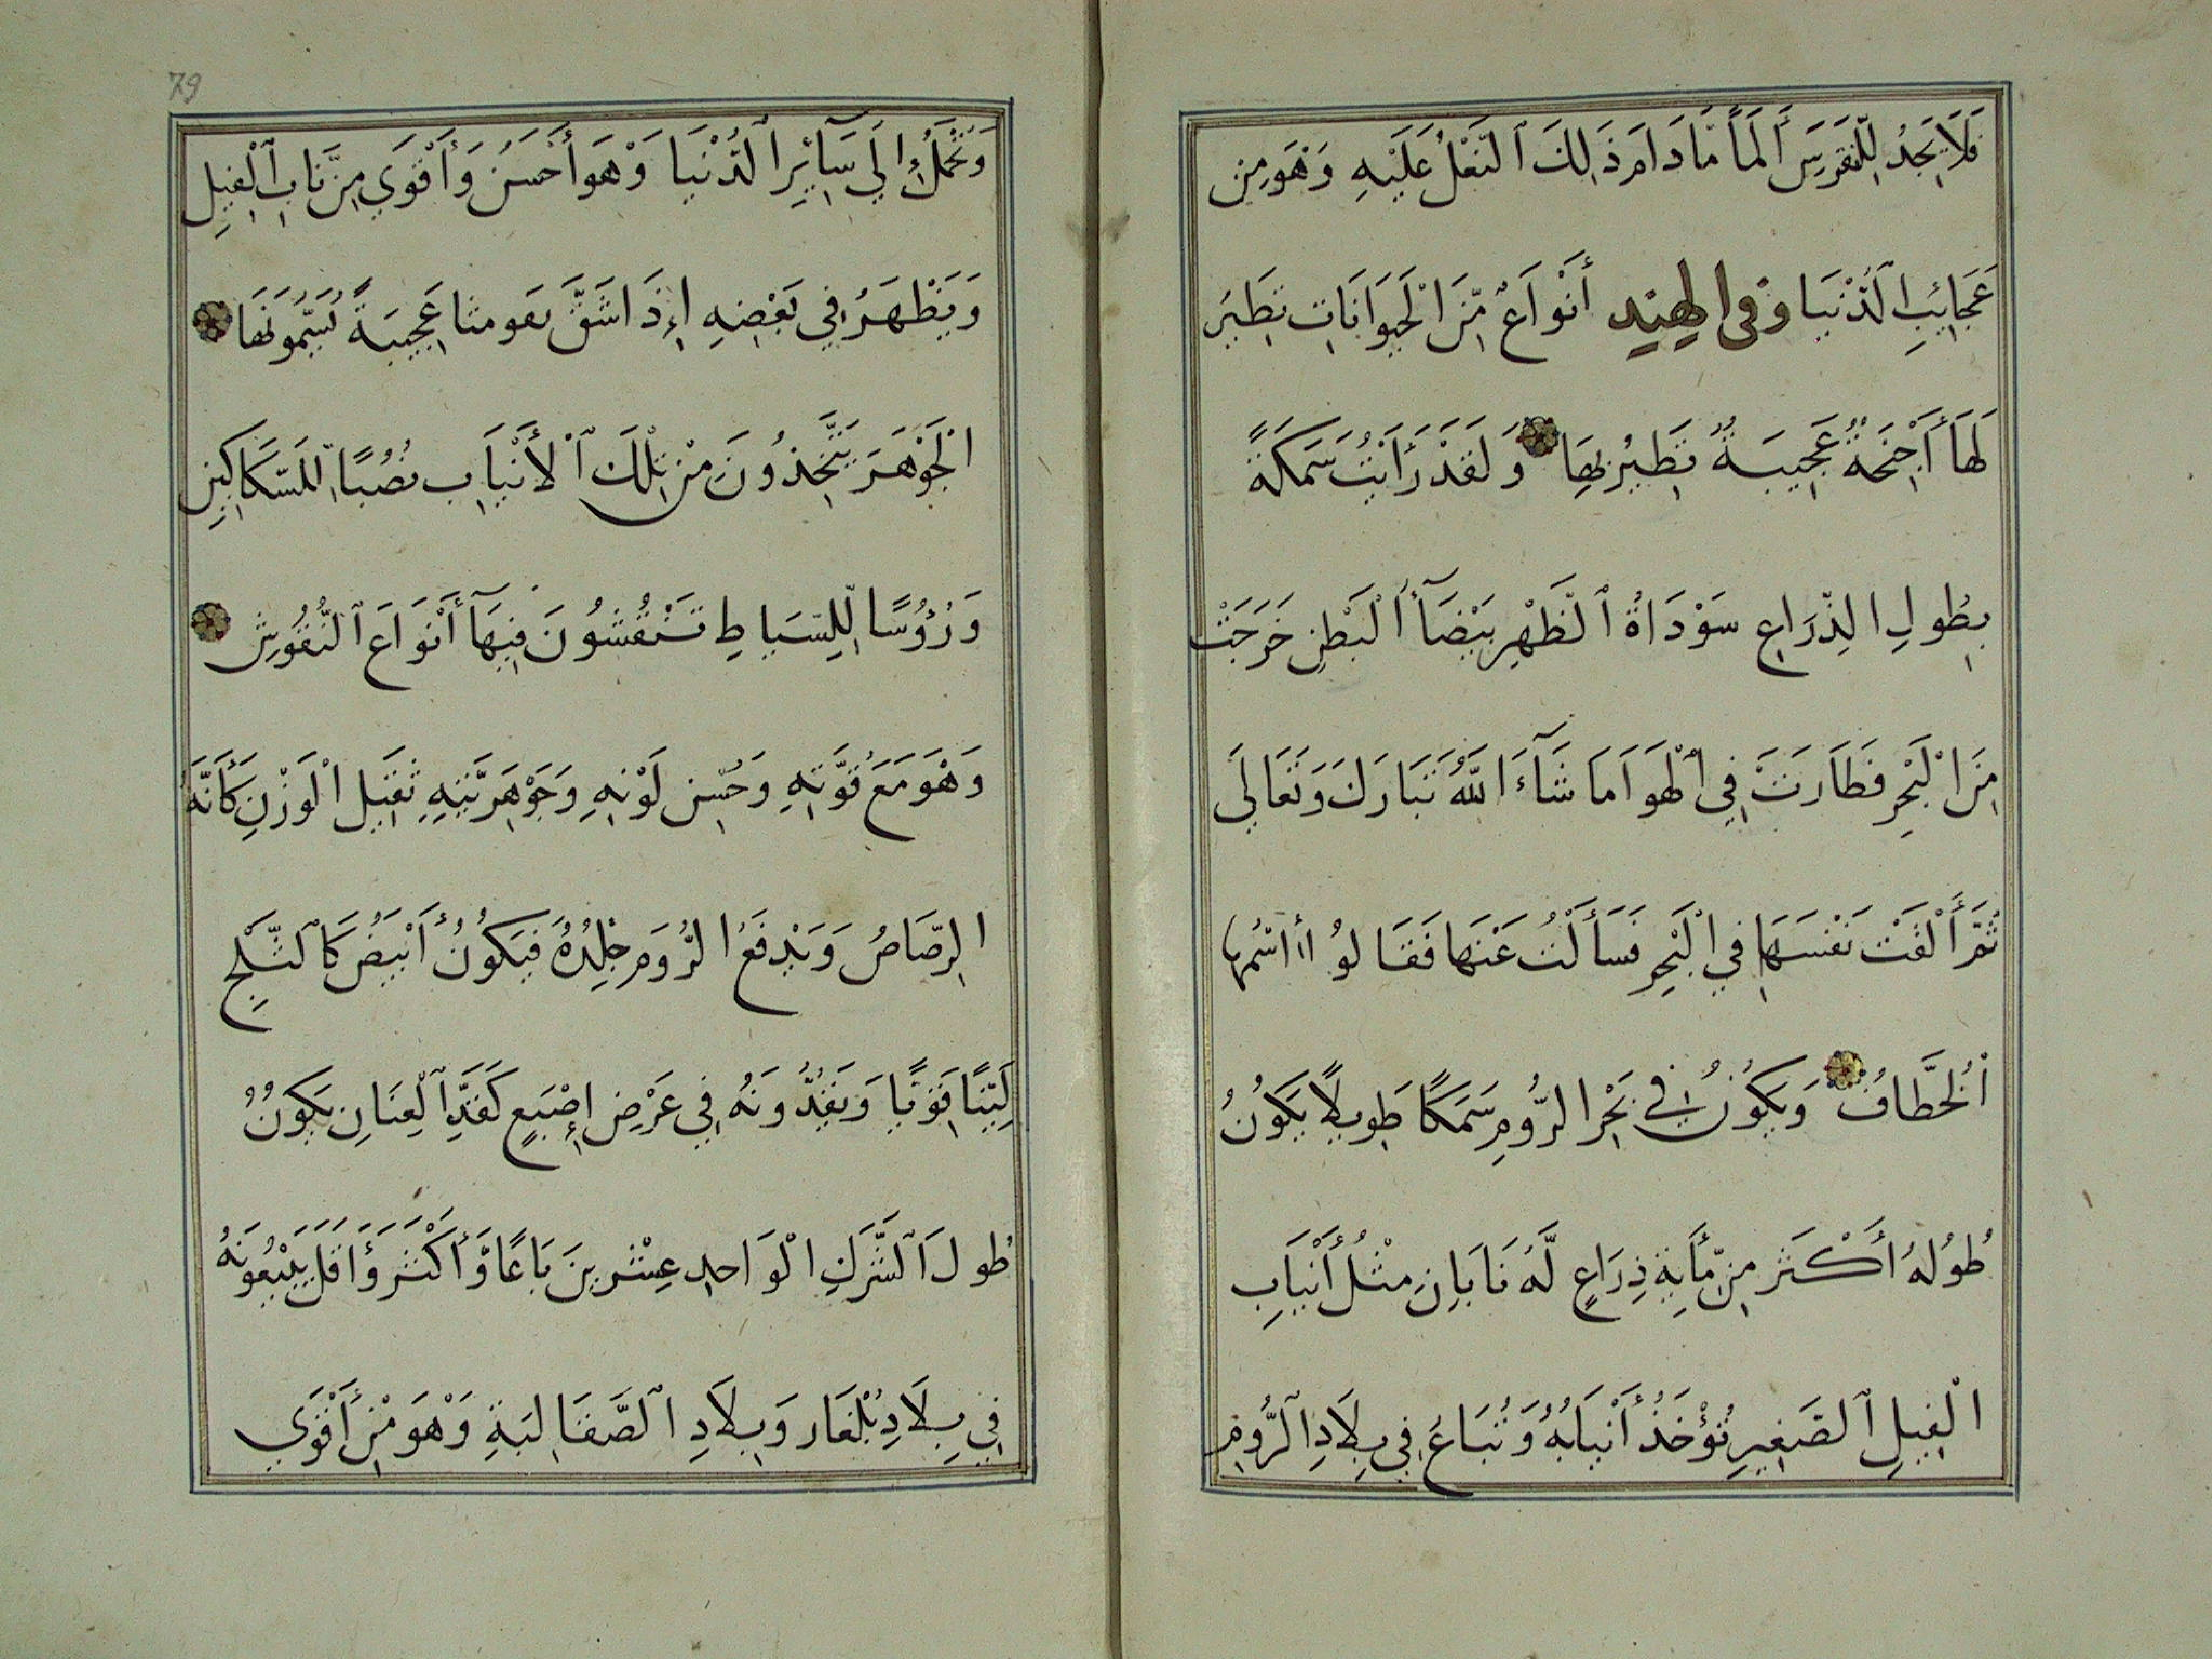 فَلَا يَجِدُ لِلنِّقْرِسِ أَلَمًا مَّا دَامَ ذَلِكَ ٱلنَّعْلُ عَلَيْهِ وَهْوَ مِن
عَجَايِبِ الدُّنْيَا وَفِى الهِنْدِ أَنْوَاعٌ مِّنَ الْحَيَوَانَاتِ تَطِيرُ
لَهَا أَجْنِحَةٌ عَجِيبَةٌ تَطِيرُ بِهَا وَلَقَدْ رَأَيْتُ سَمَكَةً
بِطُولِ الذِّرَاعِ سَوْدَاةُ ٱلظَّهْرِ بَيْضَآُ الْبَطْنِ خَرَجَتْ
مِنَ الْبَحْرِ فَطَارَتْ فِي الْهَوَا مَا شَآءَ اللَّهُ تَبَارَكَ وَتَعَالَى
ثُمَّ أَلْقَتْ نَفْسَهَا فِي الْبَحْرِ فَسَأَلْتُ عَنْهَا فَقَالُوا اسْمُهَا
ٱلْخُطَّافُ وَيَكُونُ فِي بَحْرِ الرُّومِ سَمَكًا طَوِيلًا يَكُونُ
طُولُهُ أَكْثَرَ مِن مِّأَيَةِ ذِرَاعٍ لَّهُ نَابَانِ مِثْلُ أَنْيَابِ
الْفِيلِ ٱلصَّغِيرِ تُؤْخَذُ أَنْيَابُهُ وَتُبَاعُ فِي بِلَادِ ٱلرُّومِ
79
وَتُحْمَلُ إِلَي سَآئِرِ الدُّنْيَا وَهْوَ أَحْسَنُ وَأَقْوَي مِن نَّابِ ٱلْفِيلِ
وَيَظْهَرُ فِي بَعْضِهِ إِذَا شَقَّ نقومثا عَجِيبَةً يُسَمُّونَهَا
الْجَوْهَرَ يَتَّخِذُونَ مِنْ تِلْكَ ٱلْأَنْيَابِ نُصُبًا لِلسَّكَاكِينِ
وَرُؤُسًا لِّلسِّيَاطِ تَنْقُشُونَ فِيهَآ أَنْوَاعَ ٱلنُّقُوشِ
وَهْوَ مَعَ قُوَّتِهِ وَحُسْنِ لَوْنِهِ وَجَوْهَرِيَّتِهِ ثَقِيلُ الْوَزْنِ كَأَنَّهُ
الرِّصَاصُ وَيَدْفَعُ الرُّومَ جِلْدُهُ فَيَكُونُ أَبْيَضَ كَٱلثَّلْجِ
لَيِّنًا قَوِيًّا وَيَقُدُّونَهُ فِي عَرْضِ إِصْبَعٍ كَقَدِّ ٱلْعِنَانِ يَكُونُ
طُولَ ٱلشَّرَكِ الْوَاحِدِ عِشْرِينَ بَاعًا وَّأَكْثَرَ وَأَقَلَّ يَبِيعُونَهُ
فِي بِلَادِ بُلْغَار وَبِلَادِ ٱلصَّقَالِبَةِ وَهْوَ مِنْ أَقْوَي